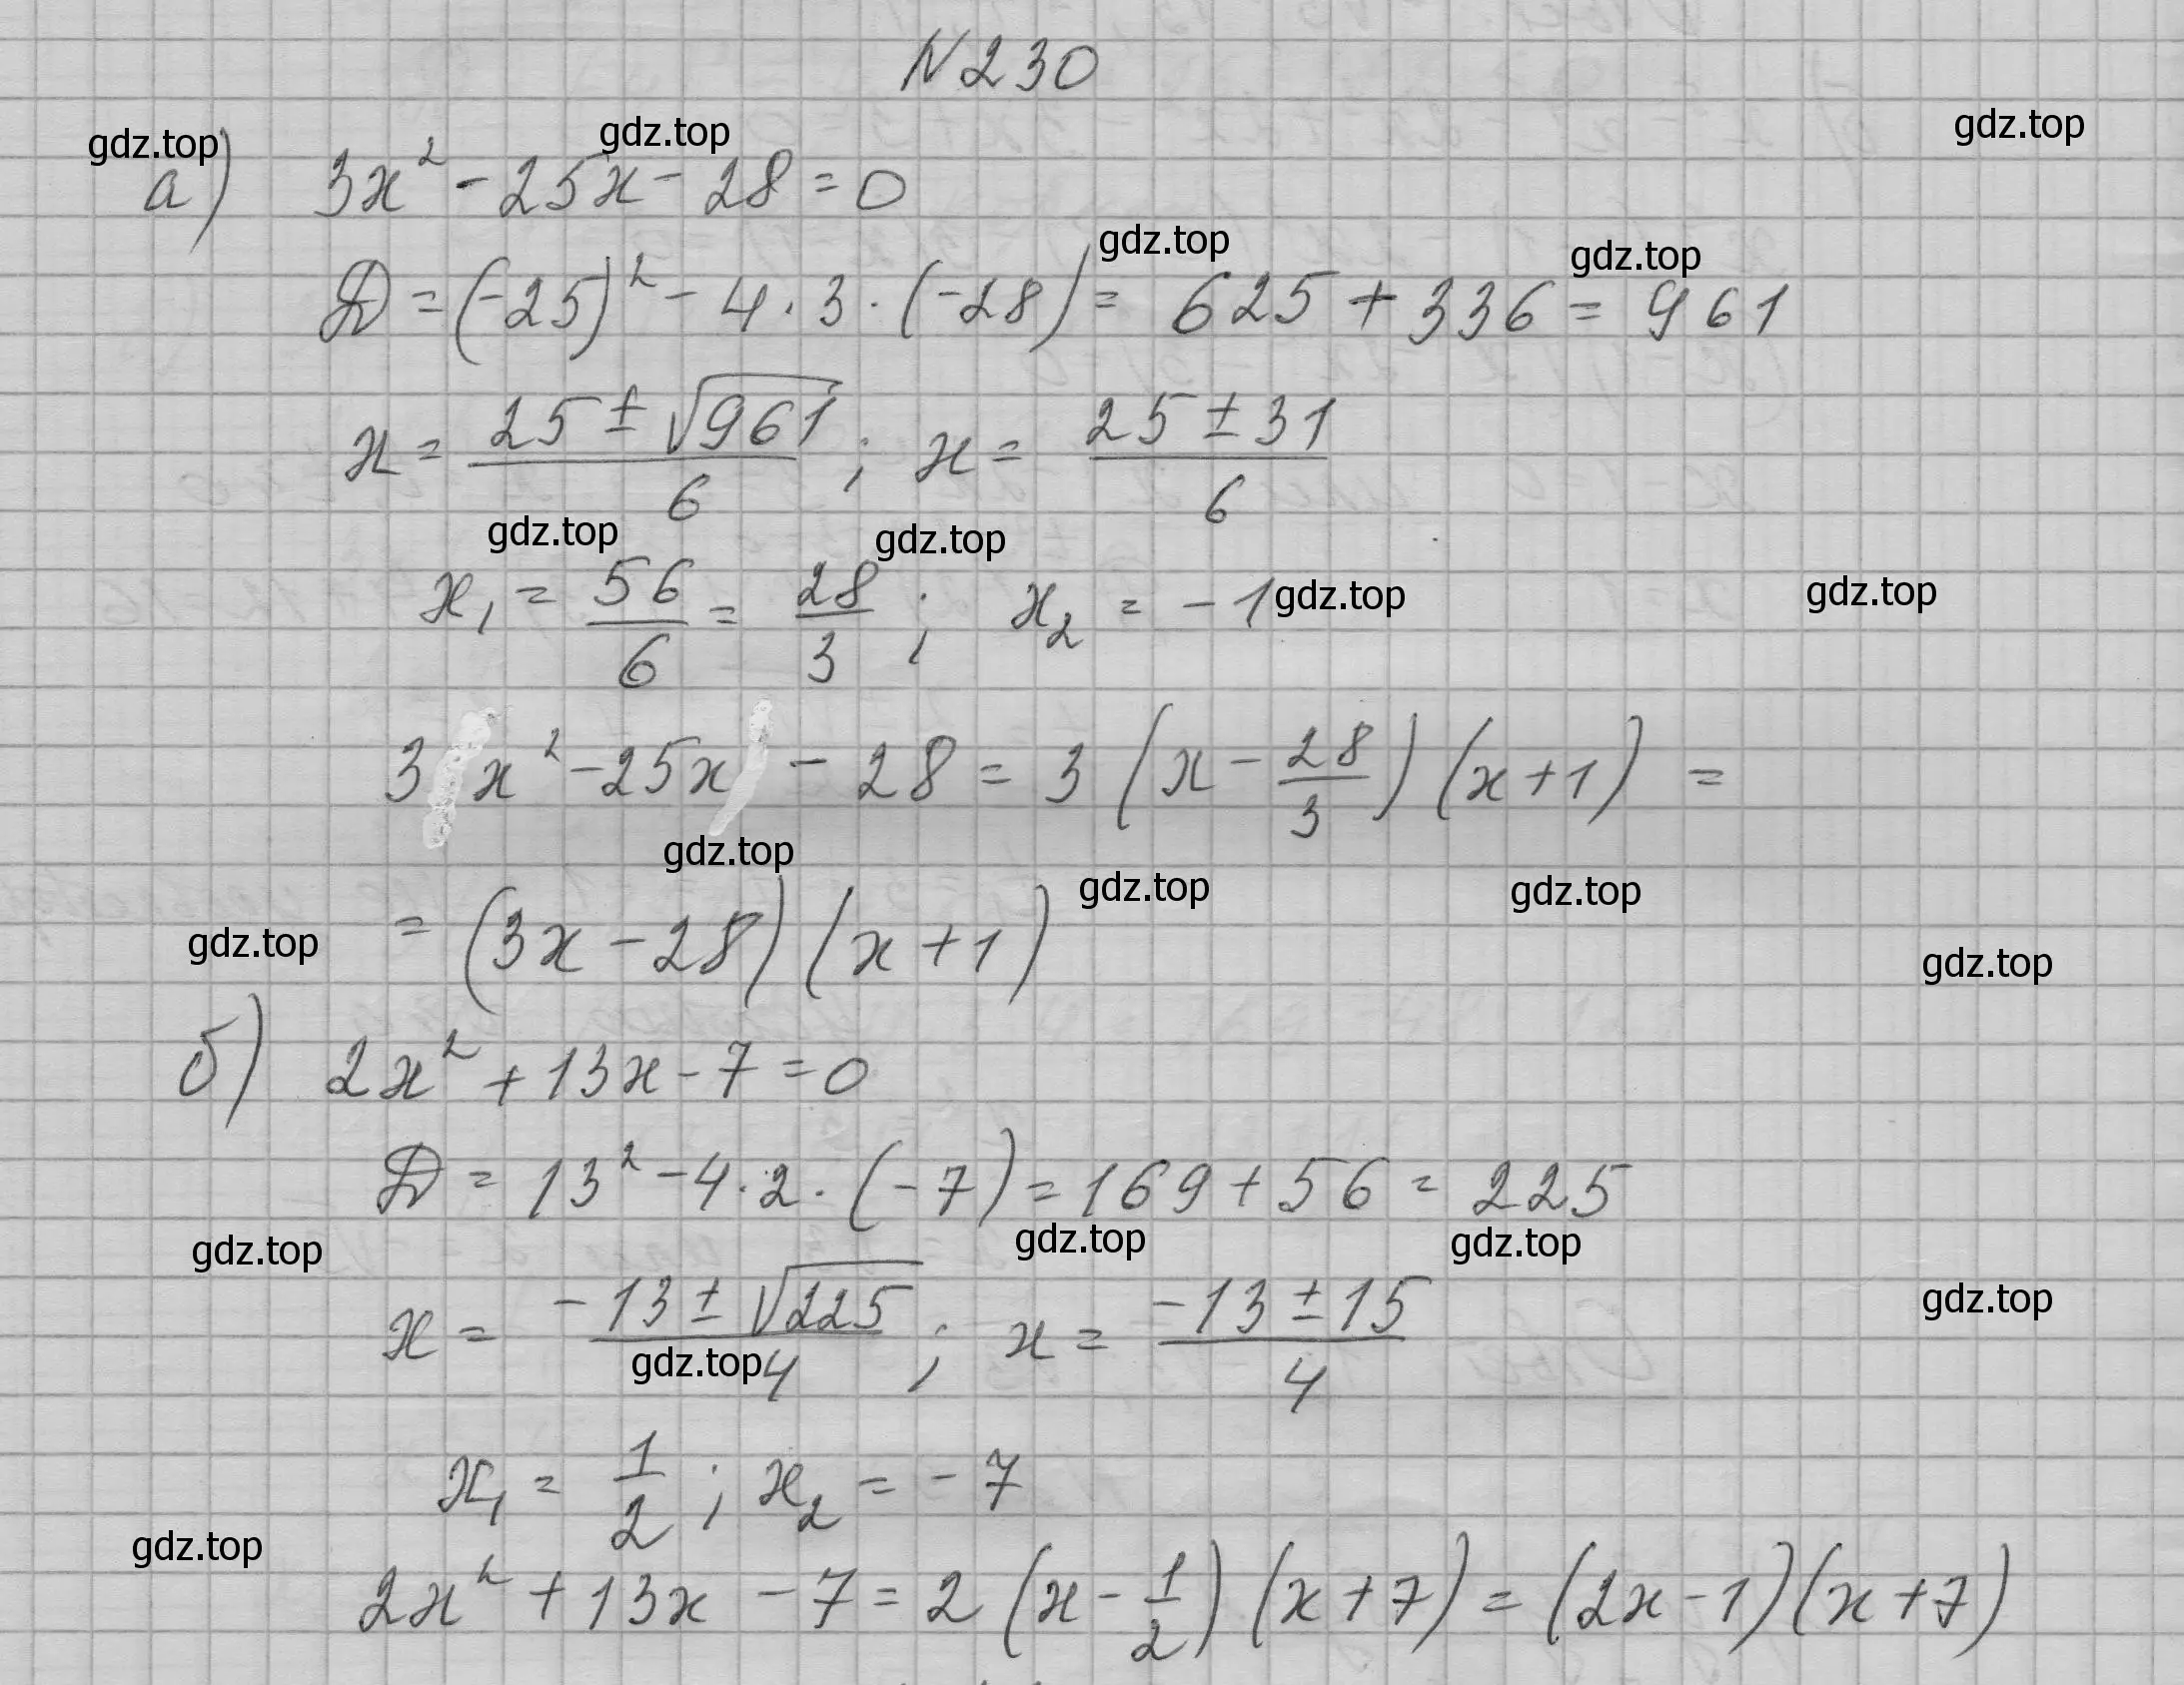 N 230
gdz.top gdz.top gdz.top
а) 3x² - 25x - 28 = 0
gdz.top gdz.top
D = (-25)² - 4 · 3 · (-28) = 625 + 336 = 961
x = (25 ± √961)/6 ; x = (25 ± 31)/6
gdz.top gdz.top gdz.top gdz.top
x₁ = 56/6 = 28/3 ; x₂ = -1
3x² - 25x - 28 = 3 (x - 28/3) (x + 1) =
gdz.top gdz.top gdz.top
gdz.top gdz.top
= (3x - 28) (x + 1)
б) 2x² + 13x - 7 = 0
D = 13² - 4 · 2 · (-7) = 169 + 56 = 225
gdz.top gdz.top gdz.top gdz.top
x = (-13 ± √225)/4 ; x = (-13 ± 15)/4
gdz.top
x₁ = 1/2 ; x₂ = -7
gdz.top
2x² + 13x - 7 = 2 (x - 1/2) (x + 7) = (2x - 1) (x + 7)